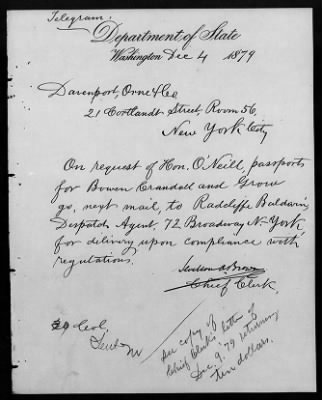 Telegram.
Department of State
Washington Dec 4 1879
Davenport, Orne & Co
21 Cortlandt Street, Room 56,
New York City
On request of Hon. O'Neill, passports
for Bowen Crandell and Grow
go, next mail, to Radcliffe Baldwin,
Dispatch Agent, 72 Broadway N-York,
for delivery upon compliance with
regulations.
Brown
Chief Clerk.
See copy of
Chief Clerk's letter of
Dec. 9. 79 returning
ten dollars.